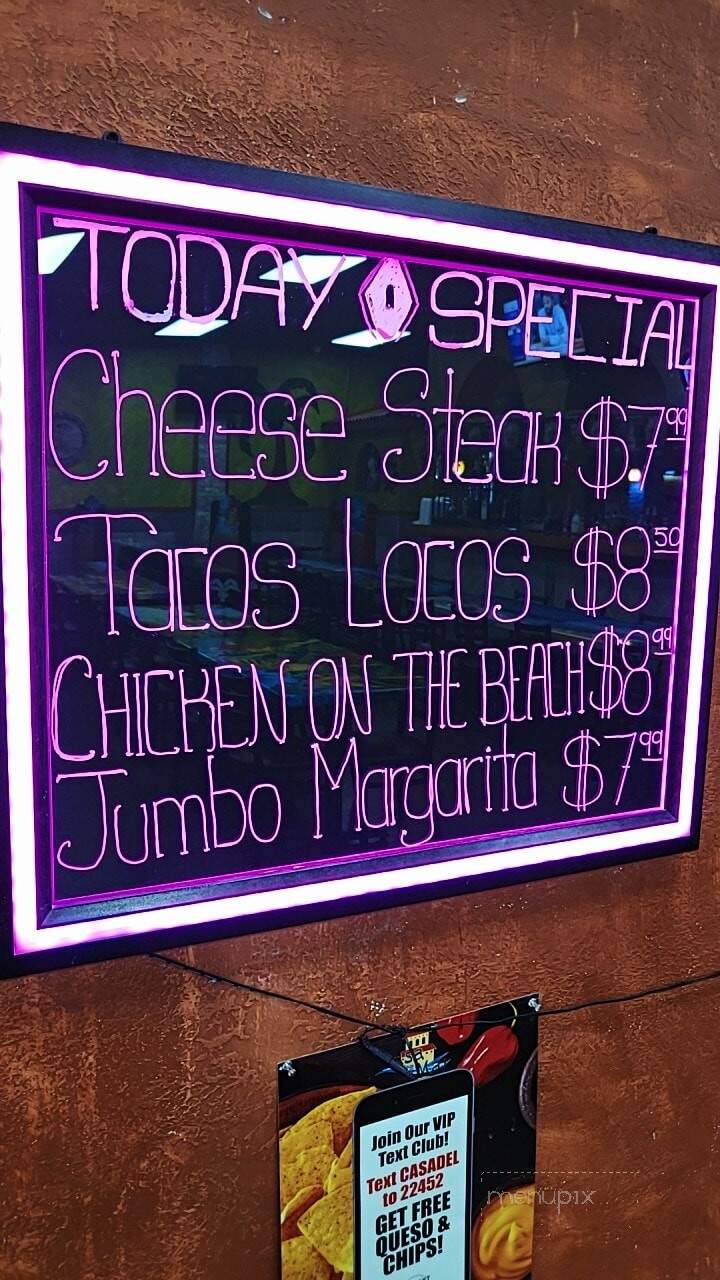 TODAY SPECIAL
Cheese Steak $7.99
Tacos Locos $8.50
CHICKEN ON THE BEACH $8.99
Jumbo Margarita $7.99
Join Our VIP
Text Club!
Text CASADEL
to 22452
GET FREE
QUESO &
CHIPS!
menupix